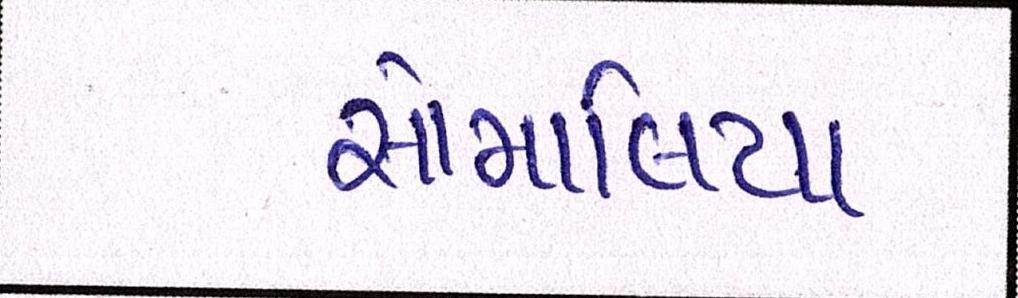 સોમાલિયા